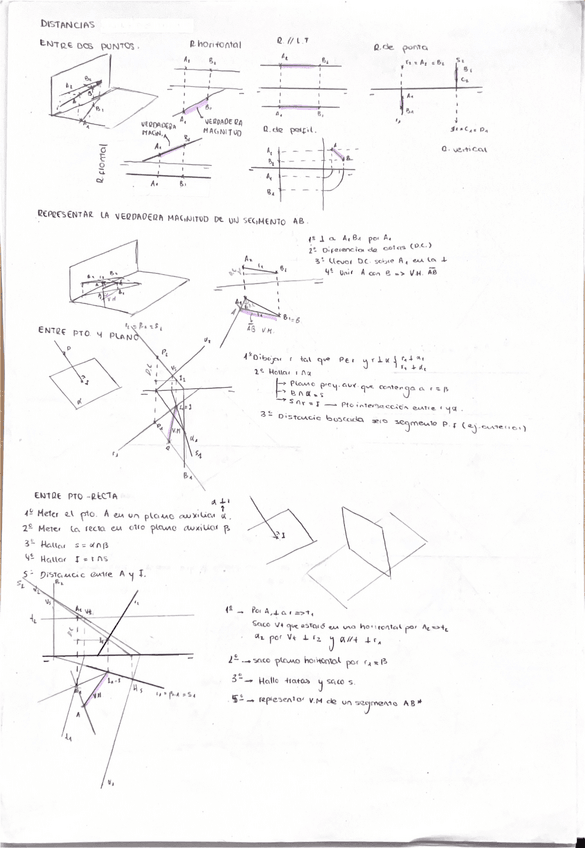 DISTANCIAS
ENTRE DOS PUNTOS.
R horizontal
R // L.T
R. de punta
VERDADERA MAGN.
VERDADERA MAGNITUD
R. de perfil.
R. frontal
R. vertical
REPRESENTAR LA VERDADERA MAGNITUD DE UN SEGMENTO AB.
1º ⊥ a A₁B₁ por A₁
2º Diferencias de cotas (D.C.)
3º Llevar D.C. sobre A₁ en la ⊥
4º Unir A con B => V.M. AB
AB V.M.
ENTRE PTO Y PLANO
1º Dibujar r tal que P∈r y r⊥α
2º Hallar r∩α
→ Plano proy. aux que contenga a r = β
→ β∩α = s
→ s∩r = I → Pto intersección entre r y α.
3º Distancia buscada será segmento P.I (ej. anterior)
V.M
ENTRE PTO-RECTA
α ⊥ r
1º Meter el pto. A en un plano auxiliar α.
2º Meter la recta en otro plano auxiliar β
3º Hallar s = α∩β
4º Hallar I = r∩s
5º Distancia entre A y I.
1º → Por A₁ ⊥ a r => t₁
Saco Vt que estará en una horizontal por A₂ => t₂
α₂ por Vt ⊥ r₂ y α₁ // t ⊥ r₁
2º → saco plano horizontal por r₁ = β
3º → Hallo trazas y saco s.
5º → representar V.M de un segmento AB*
V.M